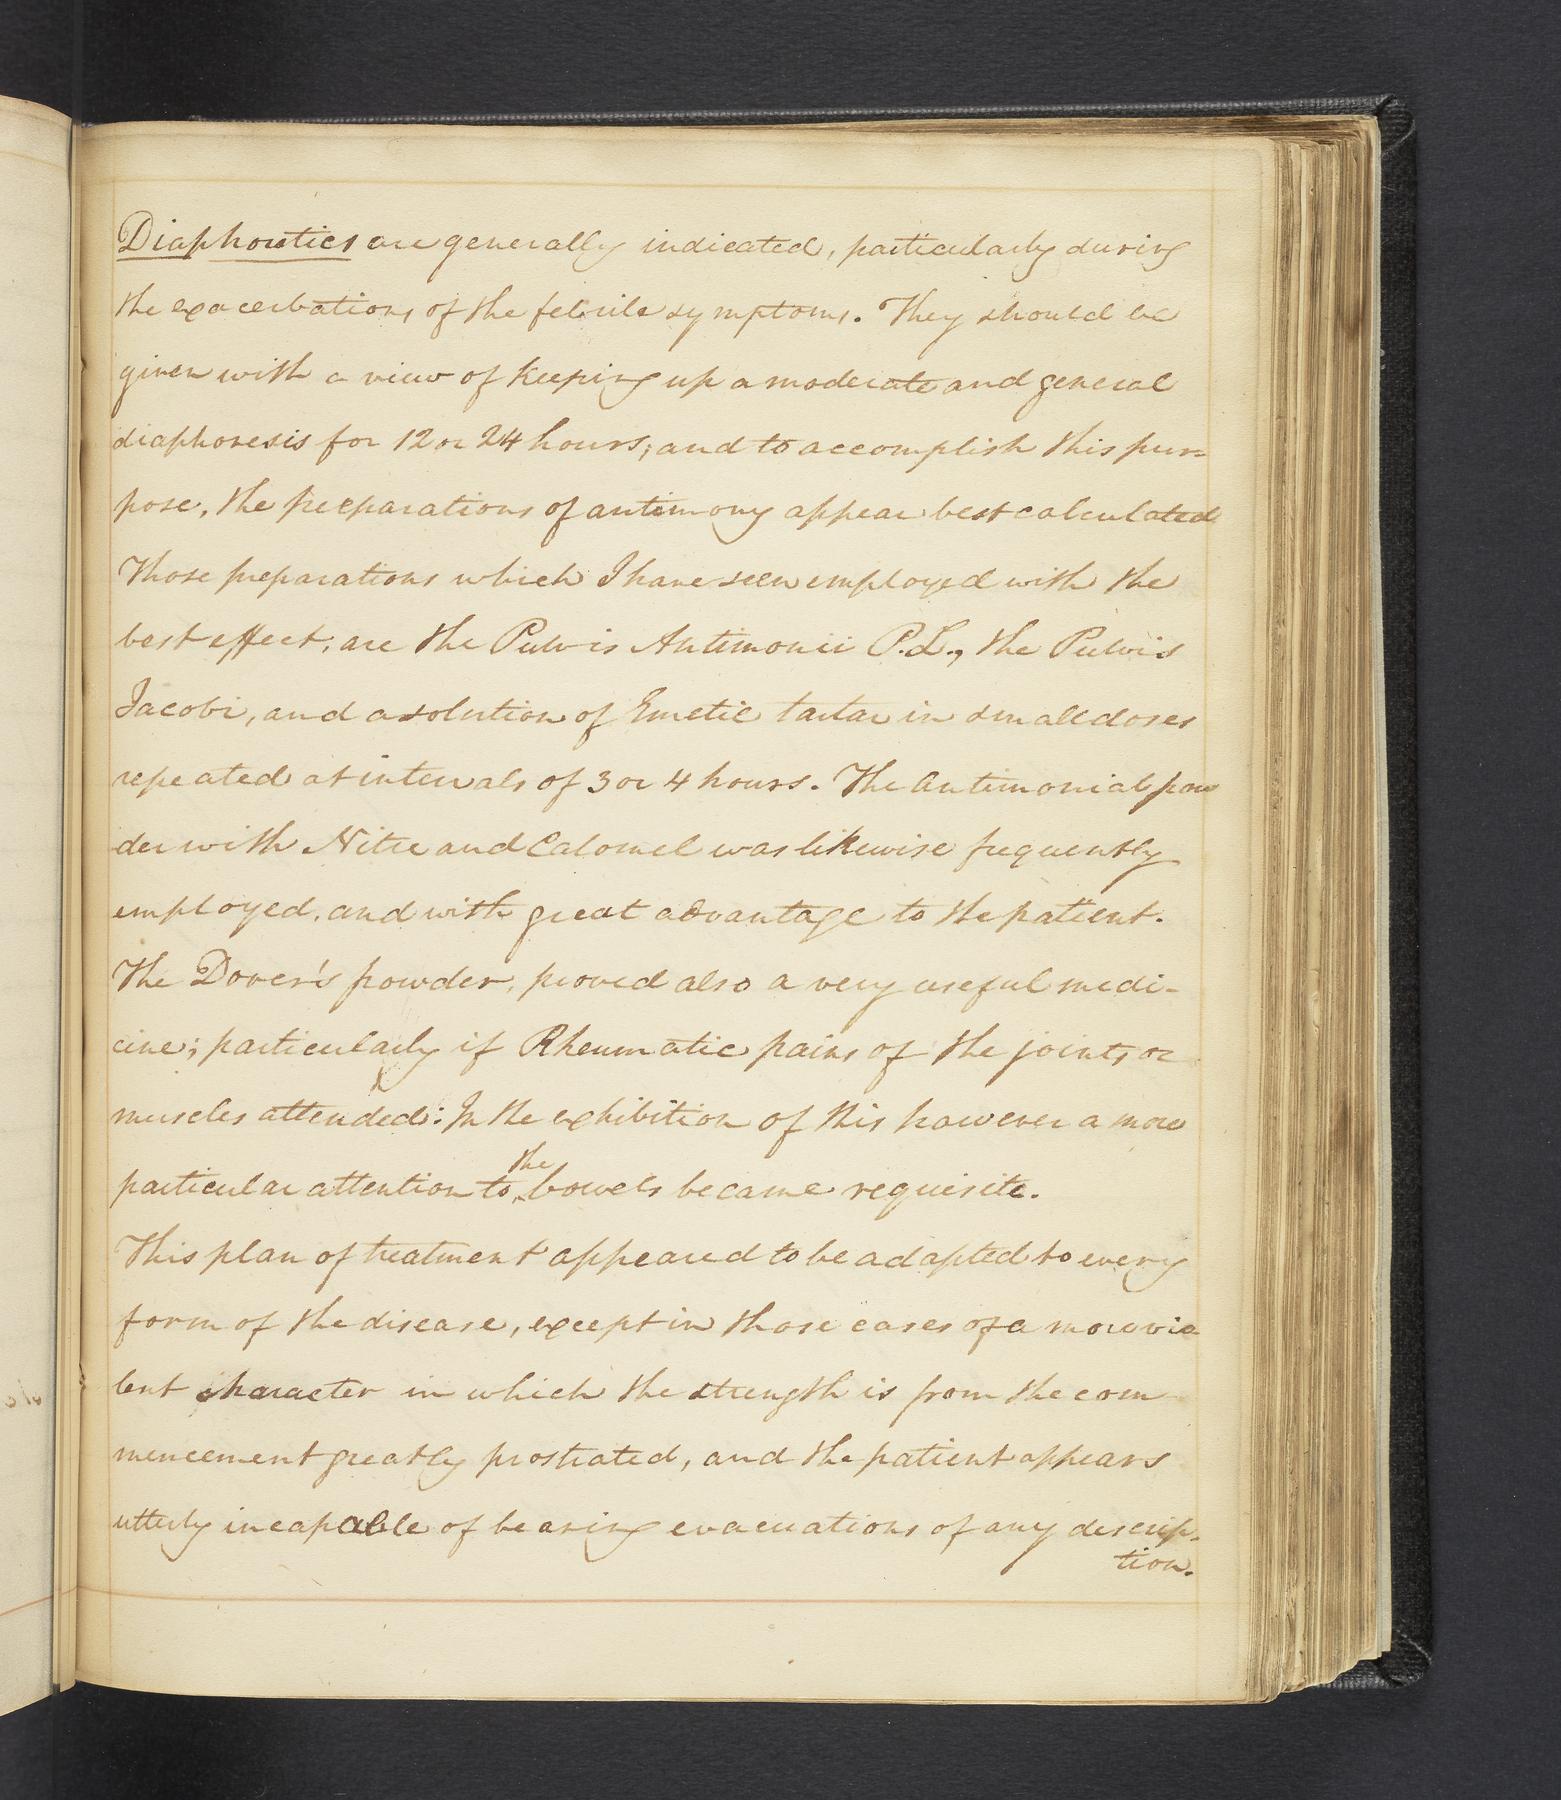 Diaphoretics are generally indicated, particularly during
the exacerbations of the febrile symptoms. They should be
given with a view of keeping up a moderate and general
diaphoresis for 12 or 24 hours; and to accomplish this pur=
pose, the preparations of antimony appear best calculated
Those preparations which I have seen employed with the
best effect, are the Pulvis Antimonii P.L., the Pulvis
Jacobi, and a solution of Emetic tartar in small doses
repeated at intervals of 3 or 4 hours. The Antimonial pow
der with Nitre and Calomel was likewise frequently
employed, and with great advantage to the patient.
The Dover's powder, proved also a very useful medi-
cine; particularly if Rheumatic pains of the joints or
muscles attended: In the exhibition of this however a more
particular attention to the bowels became requisite.
This plan of treatment appeared to be adapted to every
form of the disease, except in those cases of a more vio
lent character in which the strength is from the com
mencement greatly prostrated, and the patient appears
utterly incapable of bearing evacuations of any descrip-
tion.